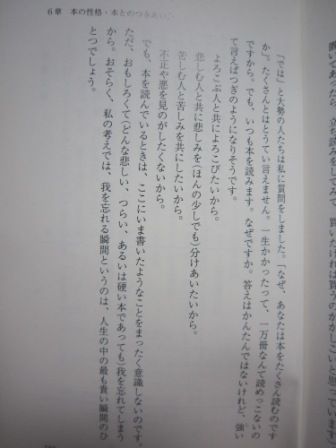 6章 本の性格・本とのつきあい
「では」と大勢の人たちは私に質問をしました。「なぜ、あなたは本をたくさん読むのです
か」。たくさんとはとうてい言えません。一生かかったって、一万冊なんて読めっこないの
ですから。でも、いつも本を読みます。なぜですか。答えはかんたんではないけれど、強い
て言えばつぎのようになりそうです。
よろこぶ人と共によろこびたいから。
悲しむ人と共に悲しみを(ほんの少しでも)分けあいたいから。
苦しむ人と苦しみを共にしたいから。
不正や悪を見のがしたくないから。
でも、本を読んでいるときは、ここにいま書いたようなことをまったく意識しないのです。
ただ、おもしろくて(どんな悲しい、つらい、あるいは硬い本であっても)我を忘れてしまう
から。おそらく、私の考えでは、我を忘れる瞬間というのは、人生の中の最も貴い瞬間のひ
とつでしょう。